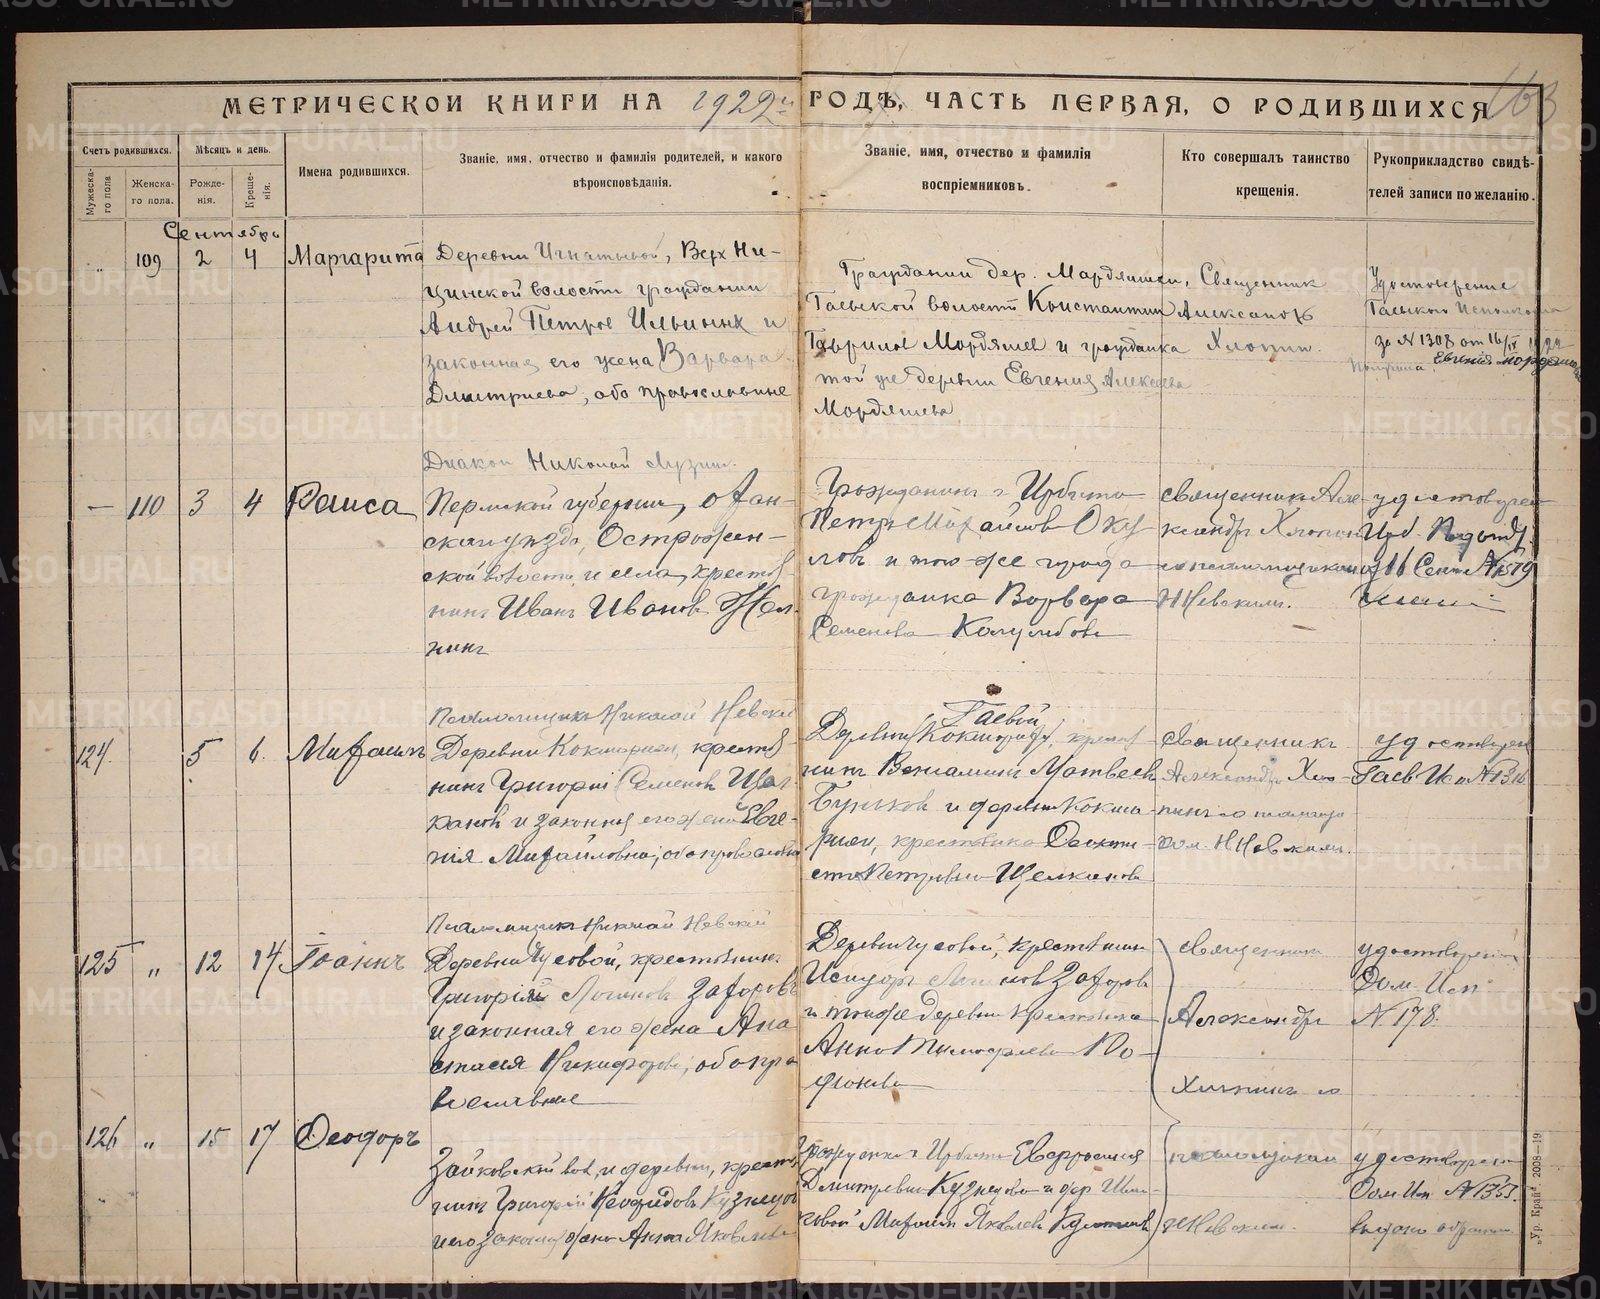 МЕТРИЧЕСКОЙ КНИГИ НА 1922й ГОДЪ, ЧАСТЬ ПЕРВАЯ, О РОДИВШИХСЯ
163
Счетъ родившихся.
Мѣсяцъ и день.
Мужеска-
го пола
Женска-
го пола.
Рожде-
нія.
Креще-
нія.
Имена родившихся.
Званіе, имя, отчество и фамилія родителей, и какого
вѣроисповѣданія.
Званіе, имя, отчество и фамилія
воспріемниковъ.
Кто совершалъ таинство
крещенія.
Рукоприкладство свидѣ-
телей записи по желанію.
Сентябрь
„ 109 2 4 Маргарита
Деревни Игнатьевой, Верх Ни-
цинской волости гражданин
Андрей Петров Ильиных и
законная его жена Варвара
Дмитриева, оба православные
Гражданин дер. Мордяшихи,
Гаевской волости Константин
Гаврилов Мордяшев и гражданка
той же деревни Евгения Алексеева
Мордяшева
Священник
Александр
Хлопин
Удостоверение
Гаевского
за № 1308 от 16/IX 1922
Получила Евгения
Диакон Николай
— 110 3 4 Раиса
Пермской губернии, Охан-
скаго уѣзда, Острожен-
ской волости и села, крестья-
нинъ Иванъ Ивановъ Жел-
нинъ
Гражданинъ г Ирбита
Петръ Михайловъ Оку-
ловъ и того-же города
гражданка Варвара
Семенова Колумбова
священникъ Але-
ксандръ Хлопинъ
съ псаломщикомъ
Н Невскимъ.
удостоверен
Ирб.
16 Сент № 1579
Псаломщикъ Николай Невский
124. 5 6. Михаилъ
Деревни Кокшарихи, крестья-
нинъ Григорій Семеновъ Щел-
кановъ и законная его жена Евге-
нія Михайловна, оба православные
Гаевой
Деревни Кокшарихи, крестья-
нинъ Вениаминъ Матвеевъ
Буньковъ и деревни Кокша-
рихи, крестьянка
Петровна Щелканова
священникъ
Александръ Хло-
пинъ съ псаломщи-
ком. Н Невскимъ.
удостоверен
Гаев Исп № 1316
Псаломщикъ Николай Невский
125 „ 12 14 Іоаннъ
Деревни Чусовой, крестьянинъ
Григорій Логиновъ Захаровъ
и законная его жена Ана
стасия Никифорова, оба пра
вославные
Деревни Чусовой, крестьянин
Исидоръ Логинов Захаровъ
и той же деревни крестьянка
Анна Тимофеева
священник
Александръ
Хлопинъ съ
удостоверение
Вол. Исп
№ 178.
126 „ 15 17 Феодоръ
Зайковской вол, и деревни, крестья-
нинъ Григорій Кузнецов
и его законная жена Анна Яковлева
Гражданка г Ирбита Евфросиния
Дмитревна Кузнецова и дер
ковой Михаил Яковлев
псаломщиком
Н Невским.
удостоверен
Вол Исп № 1353.
выдано обратно
„Ур. Край“ 2008—19
METRIKI.GASO-URAL.RU